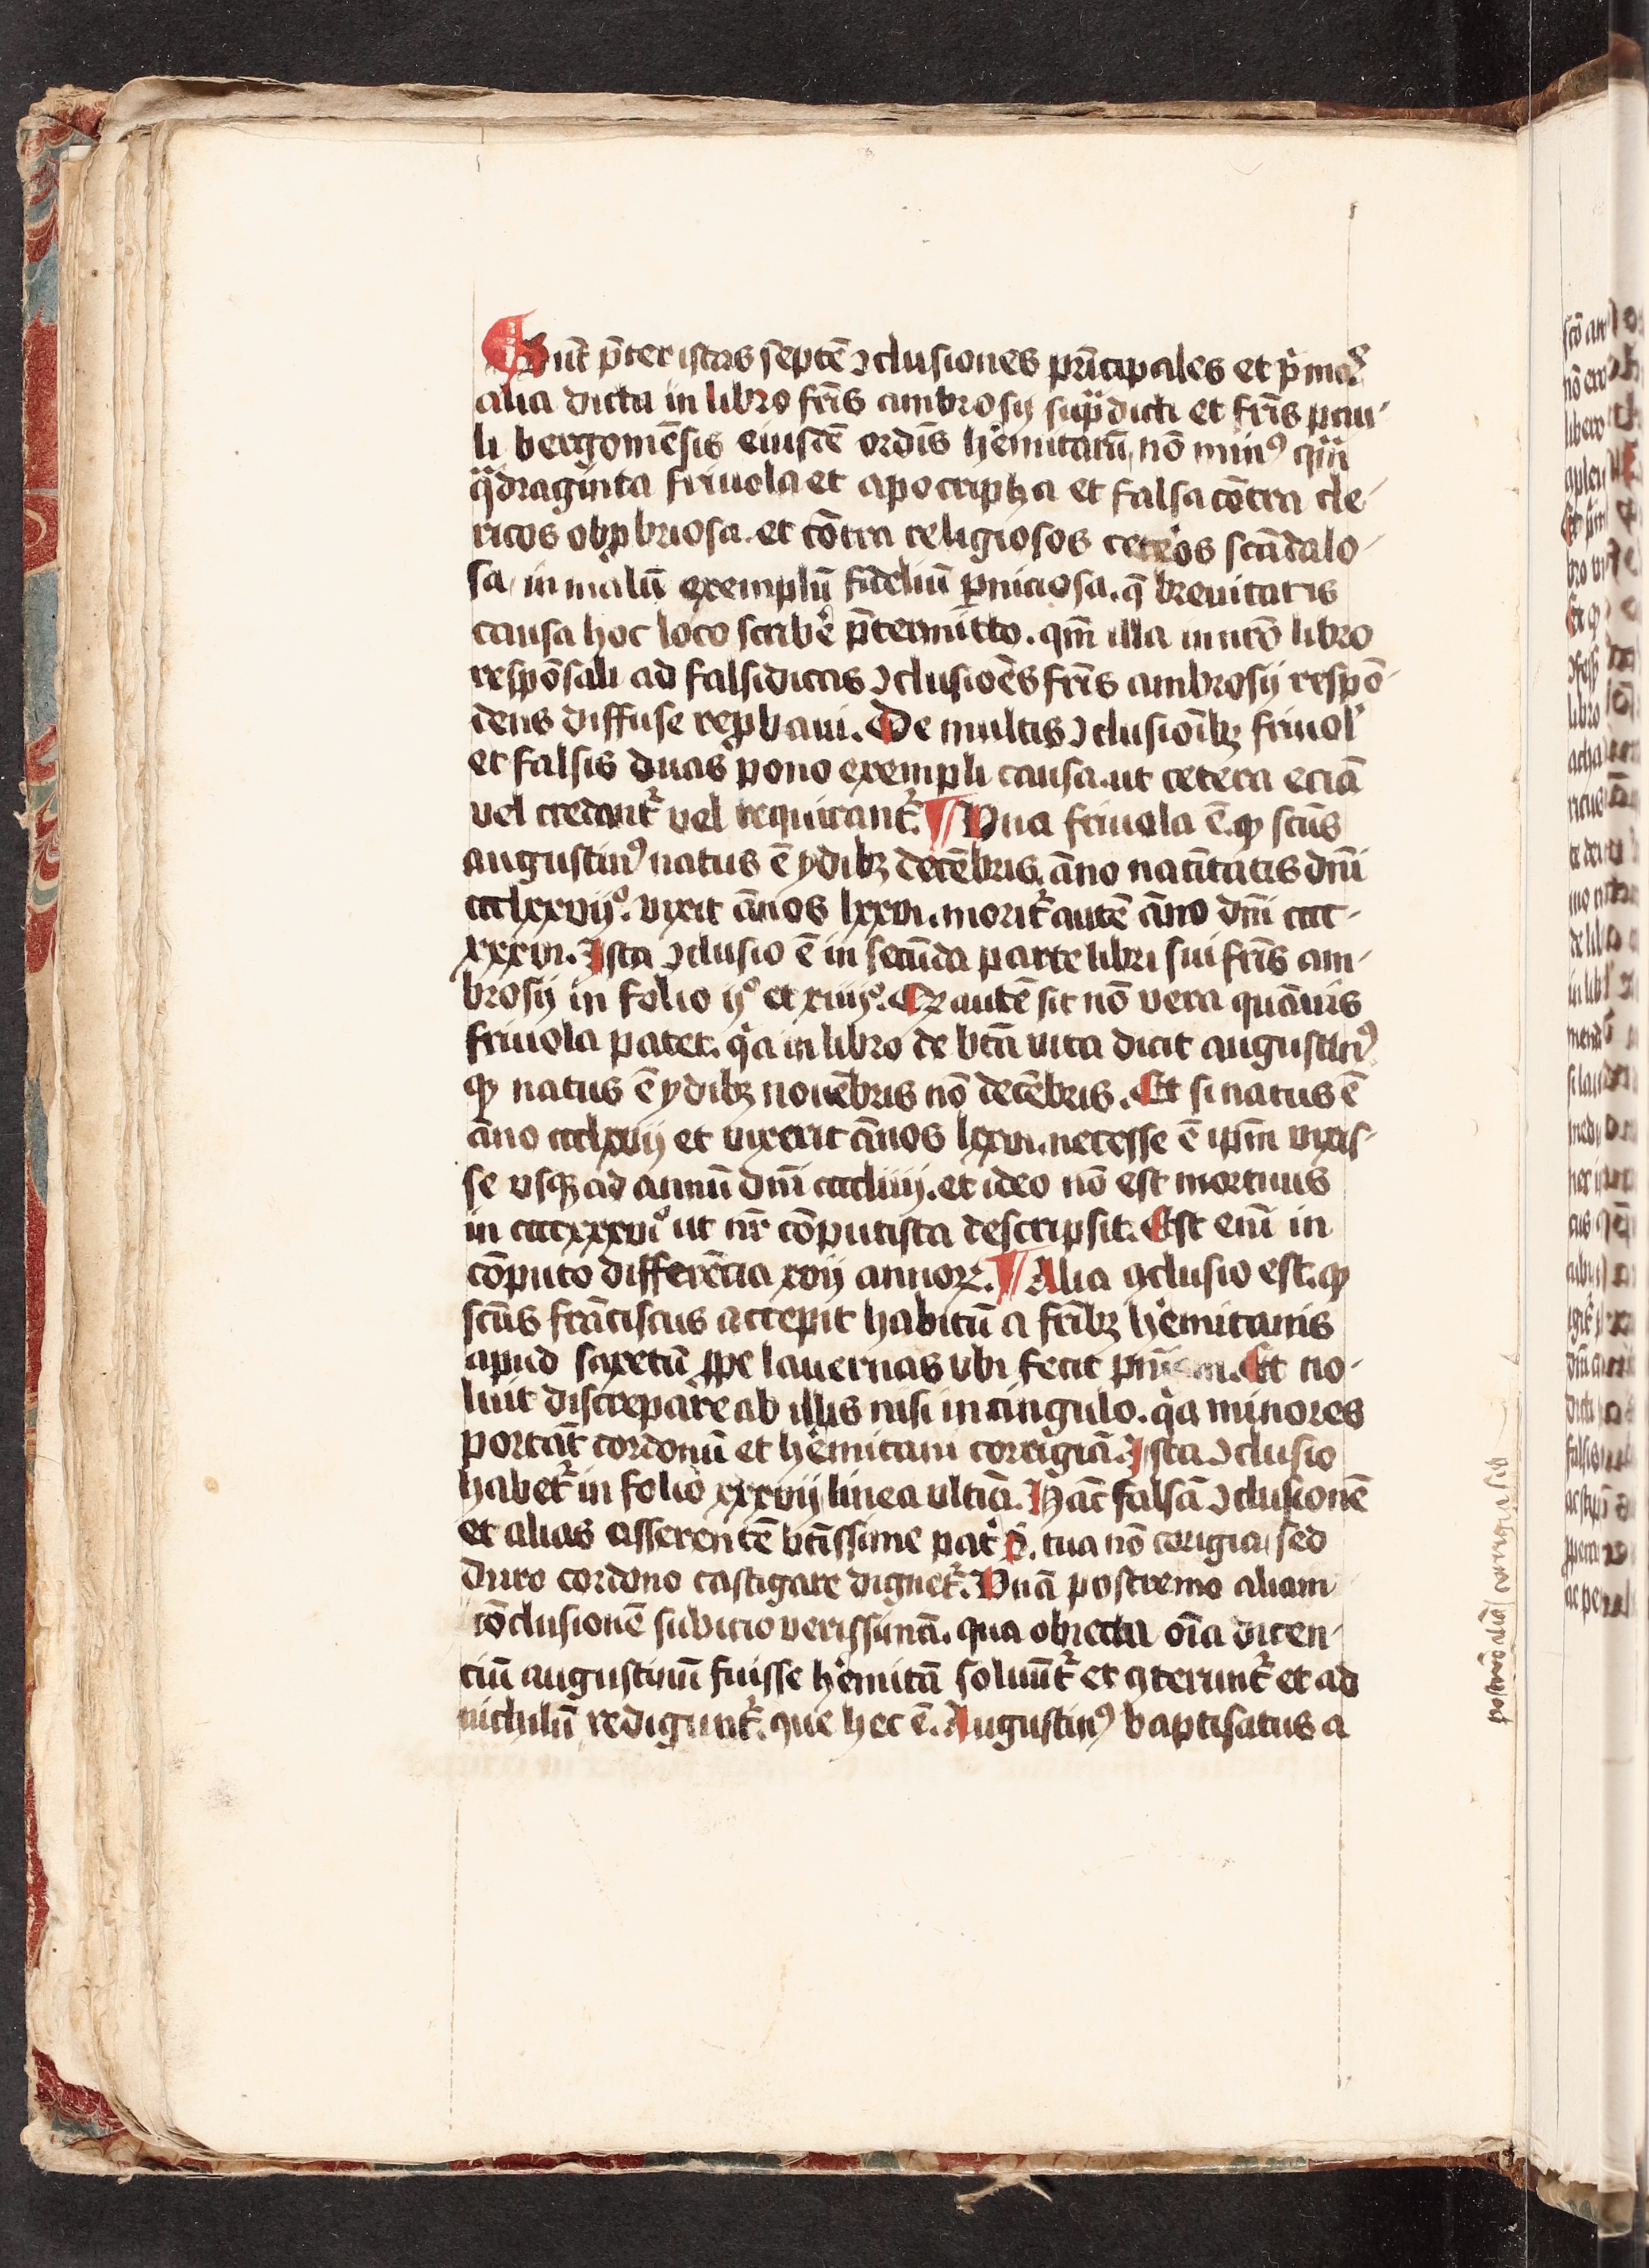 Sunt p̄ter istas septē ↄclusiones prīcipales et p̍mā
alia dicta in libro fr̄is ambrosij sup̄dicti et fr̄is pau-
li bergomēsis eiusdē ordīs h̓emitarū, nō min⁹ quā
q̈draginta friuola et apocripha et falsa cōtra cle-
ricos obp̱briosa. et cōtra religiosos ceteros scādalo-
sa, in malū exemplū fideliū ꝑniciosa. q̄ breuitatis
causa hoc loco scribe̓ p̄termitto. qm̄ illa in nr̄o libro
respōsali ad falsidicas ↄclusiōes fr̄is ambrosij respō-
dens diffuse rep̱baui. De multis ↄclusioībꝫ friuol̓
et falsis duas pono exempli causa. ut cetera eciā
vel credant᷑ vel requirant᷑. ¶ Vna friuola ē. ꝙ scūs
augustin⁹ natus ē ydibꝫ decēbris. āno natiūtatis dn̄i
ccclxxvijº. vixit ānos lxxvi. morit᷑ autē āno dn̄i cccc-
xxxvi. Ista ↄclusio ē in secūda parte libri sui fr̄is am-
brosij in folio ijº et xiiijº. Qꝫ autē sit nō vera quāuis
friuola patet. q̍a in libro de bt̄a uita dicit augustin⁹
ꝙ natus ē ydibꝫ nouēbris nō decēbris. Et si natus ē
āno ccclxxvij et vixerit ānos lxxvi. necesse ē ip̄m vixis-
se vsqꝫ ad annū dn̄i ccccliiij. et ideo nō est mortuus
in ccccxxxviº ut nr̄ cōputista descripsit. Est eni̅ in
cōputo differēcia xvij annoꝝ. ¶ Alia ꝯclusio est. ꝙ
scūs frāciscus accepit habitū a fr̄ibꝫ h̓emitanis
apud saxetū ꝓpe lauernas vbi fecit Et no-
luit discrepare ab illis nisi in cingulo. q̍a minores
portāt cordonū et h̓emitani corrigiā. Ista ↄclusio
habet᷑ in folio xxxvij linea vltiā. Hāc falsā ↄclusionē
et alias asserentē bt̄issime pat̓ tua nō corigia, sed
duro cordono castigare dignet᷑. Vnā postremo aliam
cōclusionē subicio verissimā. qua obiecta oīa dicen-
ciū augustinū fuisse h̓emitā soluūt᷑ et ꝯterunt᷑ et ad
nichilū redigunt᷑. que hec ē. Augustin⁹ baptisatus a